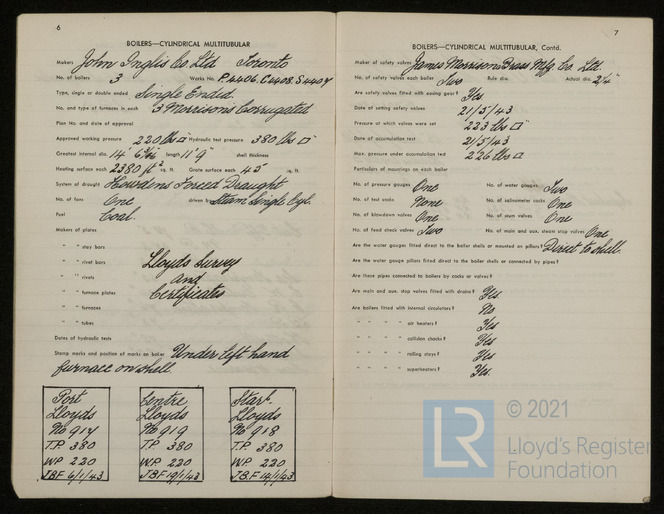 6
BOILERS—CYLINDRICAL MULTITUBULAR
Makers John Inglis Co. Ltd Toronto
No. of boilers 3 Works No. P.4406. C4408. S4407
Type, single or double ended Single Ended.
No. and type of furnaces in each 3 Morrisons Corrugated
Plan No. and date of approval
Approved working pressure 220 lbs □" Hydraulic test pressure 380 lbs □"
Greatest internal dia. 14' length 11' 9" shell thickness
Heating surface each 2380 ft² sq. ft. Grate surface each 45 sq. ft.
System of draught Howdens Forced Draught
No. of fans One driven by Steam Single Cyl.
Fuel Coal.
Makers of plates
" " stay bars
" " rivet bars Lloyds Survey
" " rivets and
" " furnace plates Certificates
" " furnaces
" " tubes
Dates of hydraulic tests
Stamp marks and position of marks on boiler Under left hand
furnace on shell
Port
Lloyds
No 917
T.P. 380
W.P. 220
J.B.F 6/1/43
Centre
Lloyds
No 919
T.P. 380
W.P. 220
J.B.F 19/1/43
Starb.
Lloyds
No 918
T.P. 380
W.P. 220
J.B.F 14/1/43
7
BOILERS—CYLINDRICAL MULTITUBULAR, Contd.
Maker of safety valves James Morrison Brass Mfg. Co. Ltd.
No. of safety valves each boiler Two Rule dia. Actual dia. 2¼"
Are safety valves fitted with easing gear? Yes
Date of setting safety valves 21/5/43
Pressure at which valves were set 223 lbs □"
Date of accumulation test 21/5/43
Max. pressure under accumulation test 226 lbs □"
Particulars of mountings on each
No. of pressure gauges One No. of water gauges Two
No. of test cocks None No. of salinometer cocks One
No. of blowdown valves One No. of scum valves One
No. of feed check valves Two No. of main and aux. steam stop valves One
Are the water gauges fitted direct to the boiler shells or mounted on pillars? Direct to shell.
Are the water gauge pillars fitted direct to the boiler shells or connected by pipes?
Are these pipes connected to boilers by cocks or valves?
Are main and aux. stop valves fitted with drains? Yes.
Are boilers fitted with internal circulators? No
" " " " air heaters? Yes
" " " " collision chocks? Yes
" " " " rolling stays? Yes
" " " " superheaters? Yes.
LR
© 2021
Lloyd's Register
Foundation